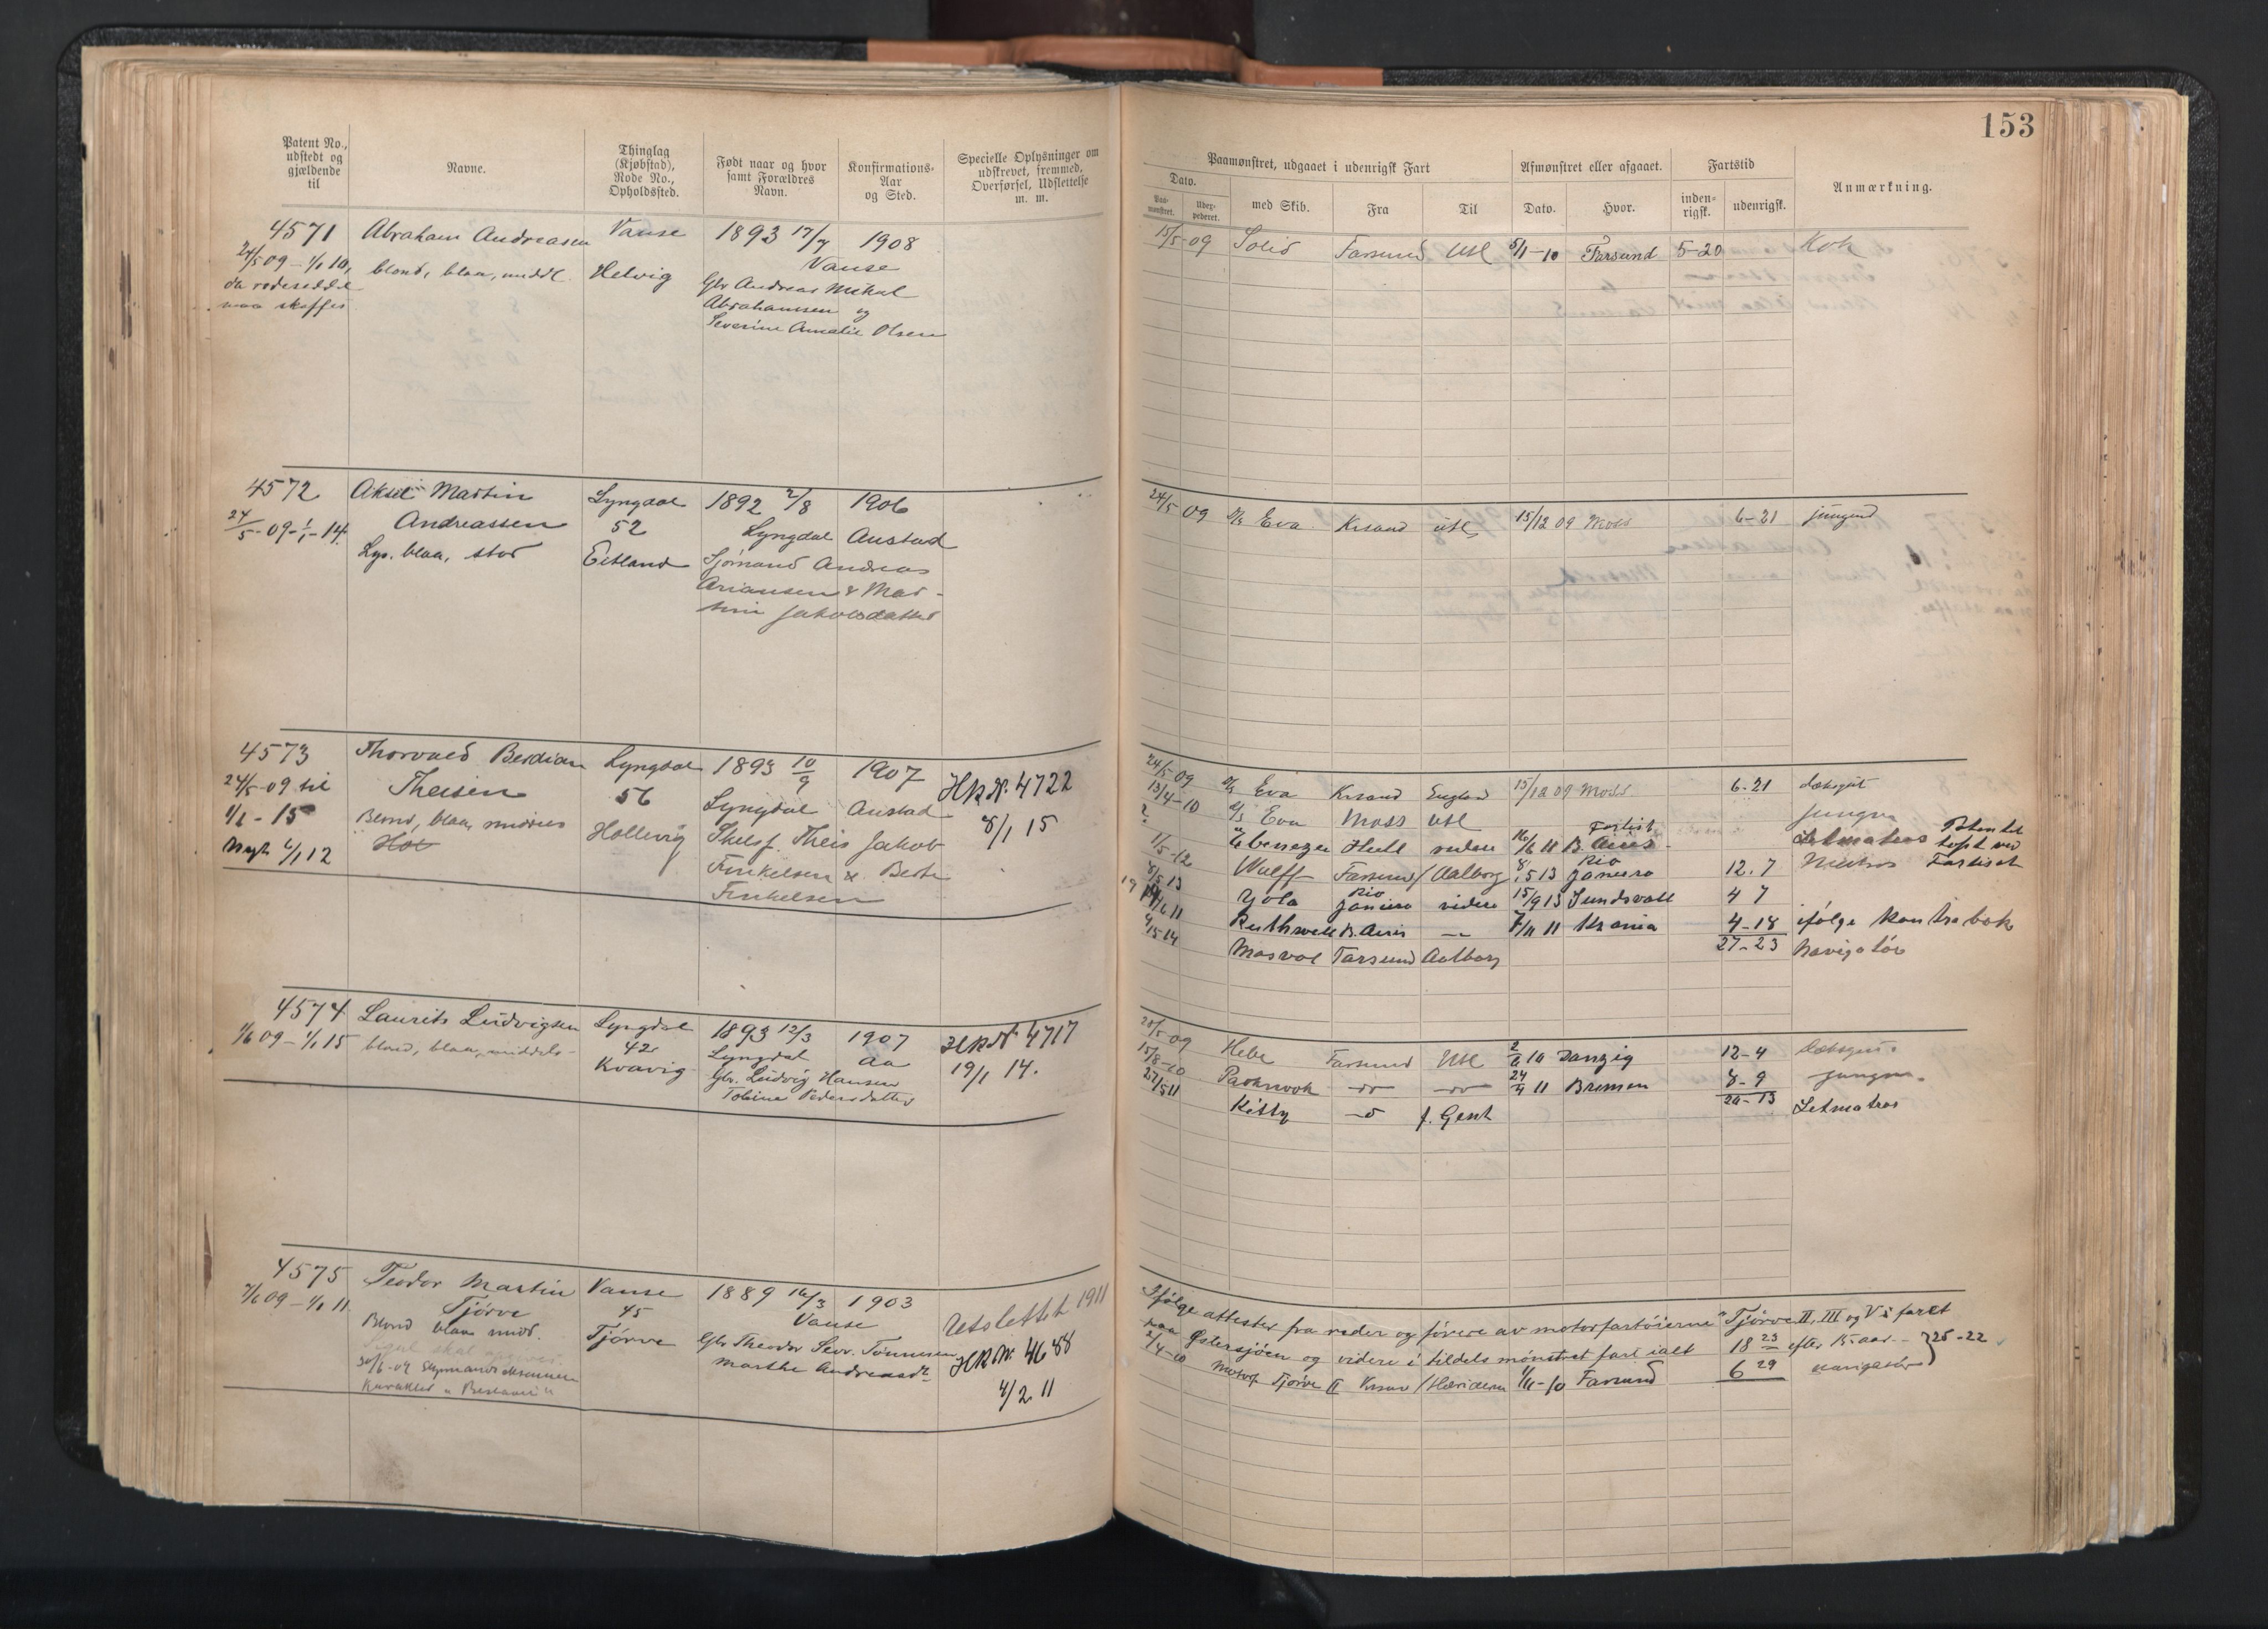 153
Patent No., udstedt og gjældende til
Navne.
Thinglag (Kjøbstad), Rode No., Opholdssted.
Født naar og hvor samt Forældres Navn.
Konfirmations-Aar og Sted.
Specielle Oplysninger om udskrevet, fremmed, Overførsel, Udslettelse m. m.
Paamønstret, udgaaet i udenrigsk Fart
Afmønstret eller afgaaet.
Fartstid
Anmærkning.
Dato.
Paa-mønstret.
Udex-pederet.
med Skib.
Fra
Til
Dato.
Hvor.
inden-rigsk.
udenrigsk.
4571 Abraham Andreasen Vanse 1893 17/7 1908
24/5 09 – 1/1 10, blond, blaa, middl. Helvig Vanse
da rodeseddel Gbr Andreas Mikal
maa skaffes Abrahamsen og
Severine Amalie Olsen
15/5-09 Solid Farsund Utl 5/11-10 Farsund 5-20 Kok
4572 Aksel Martin Lyngdal 1892 2/8 1906
24/5-09-1/1-14. Andreassen 52 Lyngdal Austad
Lys. blaa, stor Eitland Sjømand Andreas
Ariansen & Mar-
tine Jakobsdatter
24/5 09 D/S Eva Krsand utl 15/12 09 Moss 6-21 jungmd
4573 Thorvald Berdian Lyngdal 1893 10/9 1907 HR N. 4722
24/5-09 til Theisen 56 Lyngdal Austad 8/1 15
1/1-15 Blond, blaa, middels Hollevig Skelsf. Theis Jakob
Nyt 2/1 12 Finkelsen & Berte
Finkelsen
24/5 09 D/S Eva Krsand England 15/12 09 Moss 6-21 dæksgut
13/4-10 D/S Eva Moss Utl jungm
? Ebenezer Hull videre 16/6 11 B. Aires Letmatros
1/5-12 Wulff Farsund / Aalborg 8/5 13 Rio Janeiro 12. 7 Matros
8/5 13 Yola Rio Janeiro videre 15/9 13 Sundsvall 4 7
19/6 11 Ruthwell B. Aires 7/11 11 Krania 4-18 ifølge kontrabok
27-23
4/5-14 Mosvol Farsund Aalborg Navigatør
4574 Laurits Ludvigsen Lyngdal 1893 12/3 1907 HR N 4717
1/6 09 – 1/1 15 blond, blaa, middels 42 Lyngdal Aa 19/1 14.
Kvavig Gbr. Ludvig Hansen
Tobine Pedersdatter
20/5-09 Hebe Farsund Utl 2/6 10 Danzig 12-4 dæksgut
15/8-10 Parknook 24/4 11 Bremen 8-9 jungm.
20-13
27/5 11 Kitty f. Gent Letmatros
4575 Teodor Martin Vanse 1889 16/3 1903 Utslettet 1911
7/6 09 – 1/1 11. Tjørve 45 Vanse
Blond blaa midd. Tjørve Gbr Theodor Sevr. Tønnesen HR N. 4688
Marthe Andreasd. 4/2 11
Ifølge attester fra reder og førere av motorfartøierne "Tjørve II, III og V i fart
paa Østersjøen og videre i tildels mønstret fart ialt 18 23 efter 15 aar – } 25-22
2/4-10 Motorf Tjørve II Krsand 1/11-10 Farsund 6 29 navigatør